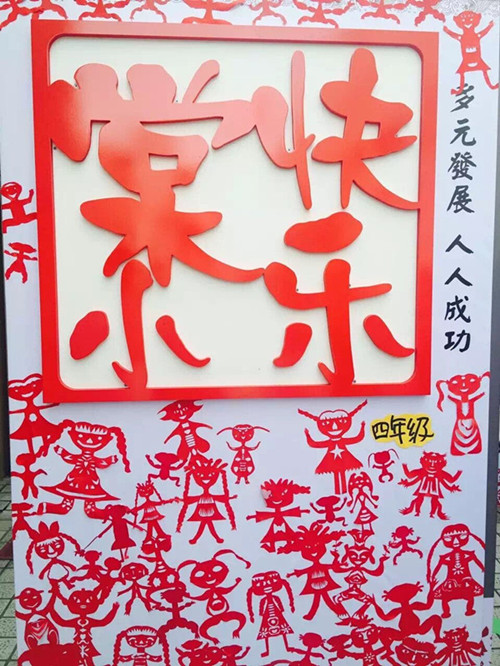 快乐
棠小
多元發展 人人成功
四年级